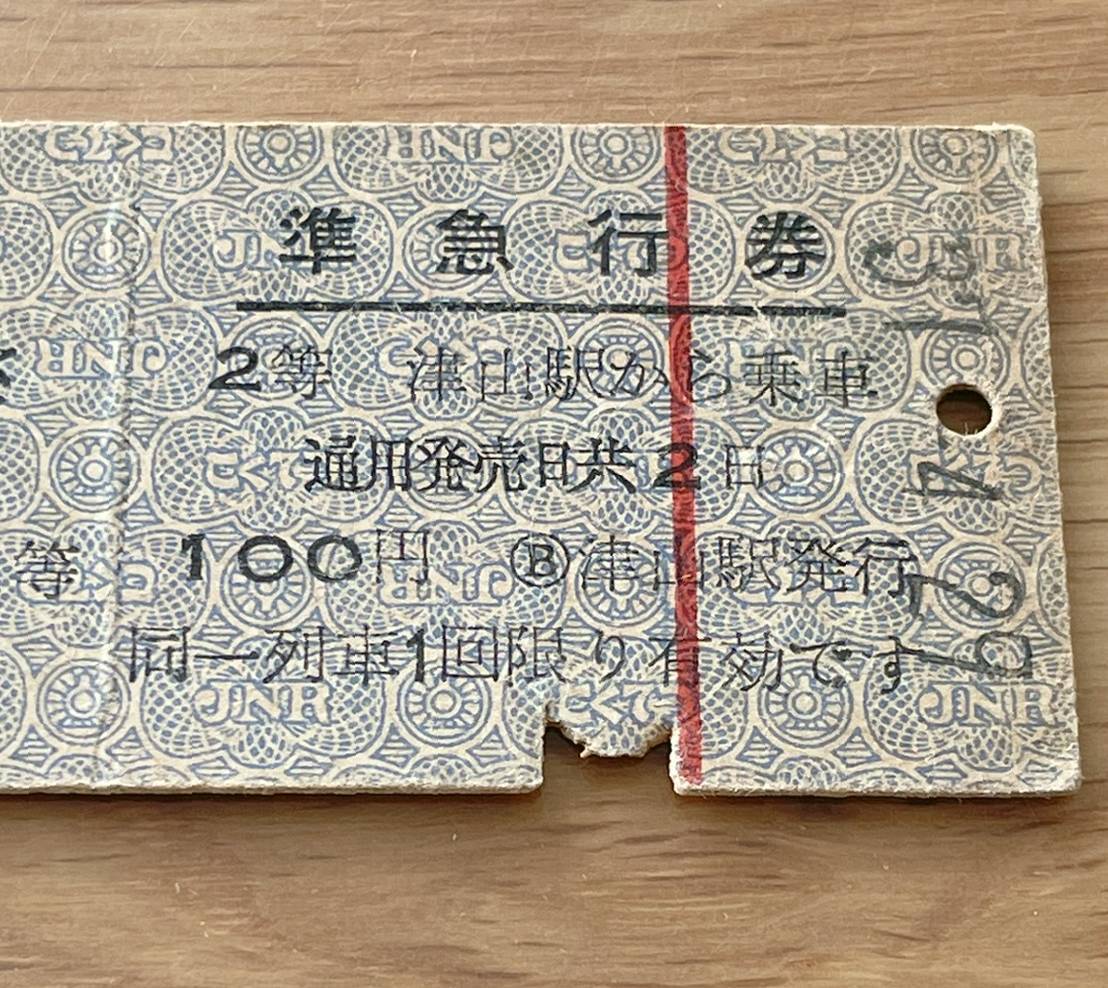 準急行券
2等 津山駅から乗車
通用発売日共2日
等 100円 Ⓑ津山駅発行
同一列車1回限り有効です
JNR
こくてつ